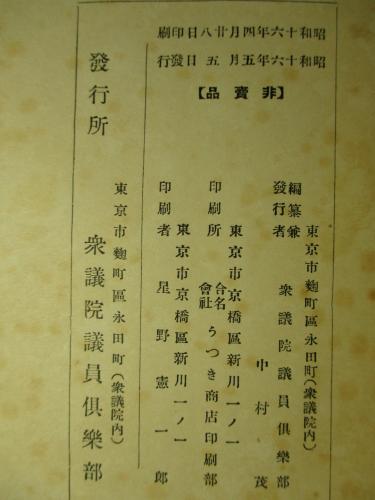 昭和十六年四月廿八日印刷
昭和十六年五月五日發行
【非賣品】
東京市麴町區永田町(衆議院內)
編纂兼發行者 衆議院議員俱樂部
中村茂
東京市京橋區新川一ノ一
印刷所 合名會社 うつき商店印刷部
東京市京橋區新川一ノ一
印刷者 星野憲一郎
東京市麴町區永田町(衆議院內)
發行所 衆議院議員俱樂部